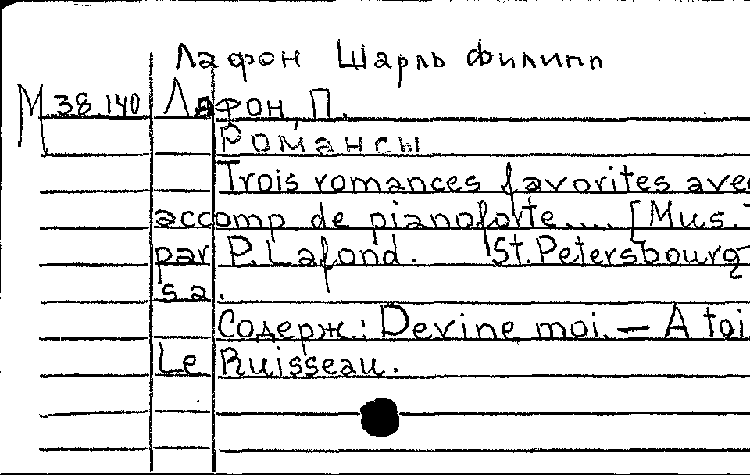 Лафон Шарль Филипп
М 38.140 Лафон, П.
Романсы
Trois romances favorites avec
accomp de pianoforte.... [Mus.
par P. Lafond. St. Petersbourg
s.a.
Содерж: Devine moi. — A toi
Le Ruisseau.